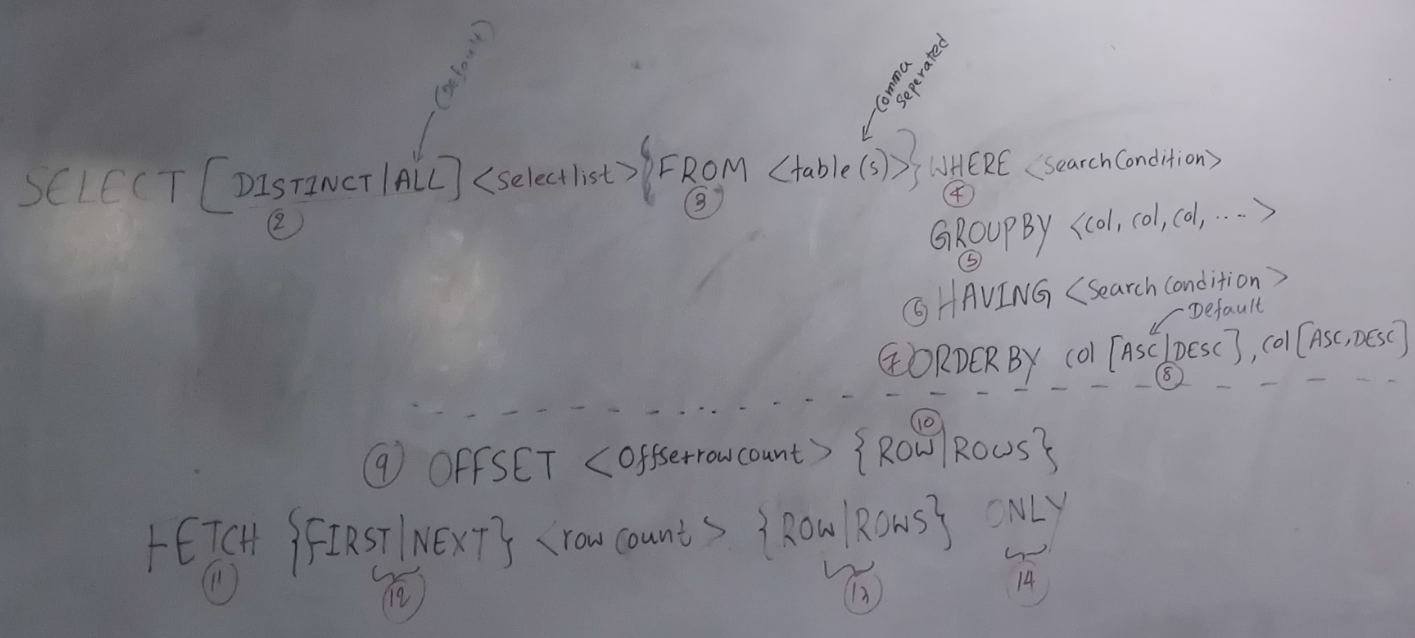 (Default)
Comma
Seperated
SELECT [DISTINCT|ALL] <Selectlist> {FROM <table(s)>} WHERE <SearchCondition>
② ③ ④
GROUPBY <col, col, col, ....>
⑤
⑥ HAVING <Search Condition>
Default
⑦ ORDERBY col [ASC|DESC], col [ASC,DESC]
⑧
⑩
⑨ OFFSET <Offsetrowcount> {ROW|ROWS}
FETCH {FIRST|NEXT} <row count> {ROW|ROWS} ONLY
⑪ ⑫ ⑬ ⑭